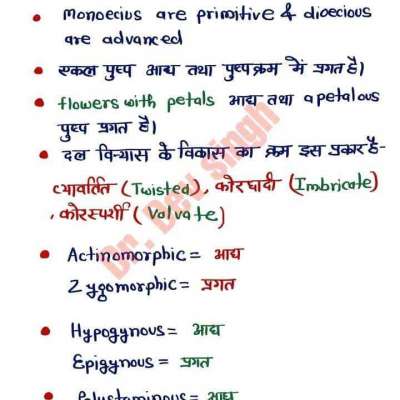 Monoecius are primitive & dioecious
are advanced
एकल पुष्प आद्य तथा पुष्पक्रम में प्रगत है।
flowers with petals आद्य तथा apetalous
पुष्प प्रगत है।
दल विन्यास के विकास का क्रम इस प्रकार है-
व्यावर्तित (Twisted), कोरछादी (Imbricate)
, कोरस्पर्शी (Valvate)
Actinomorphic = आद्य
Zygomorphic = प्रगत
Hypogynous = आद्य
Epigynous = प्रगत
Polystaminous = आद्य
Dr. Dev Singh